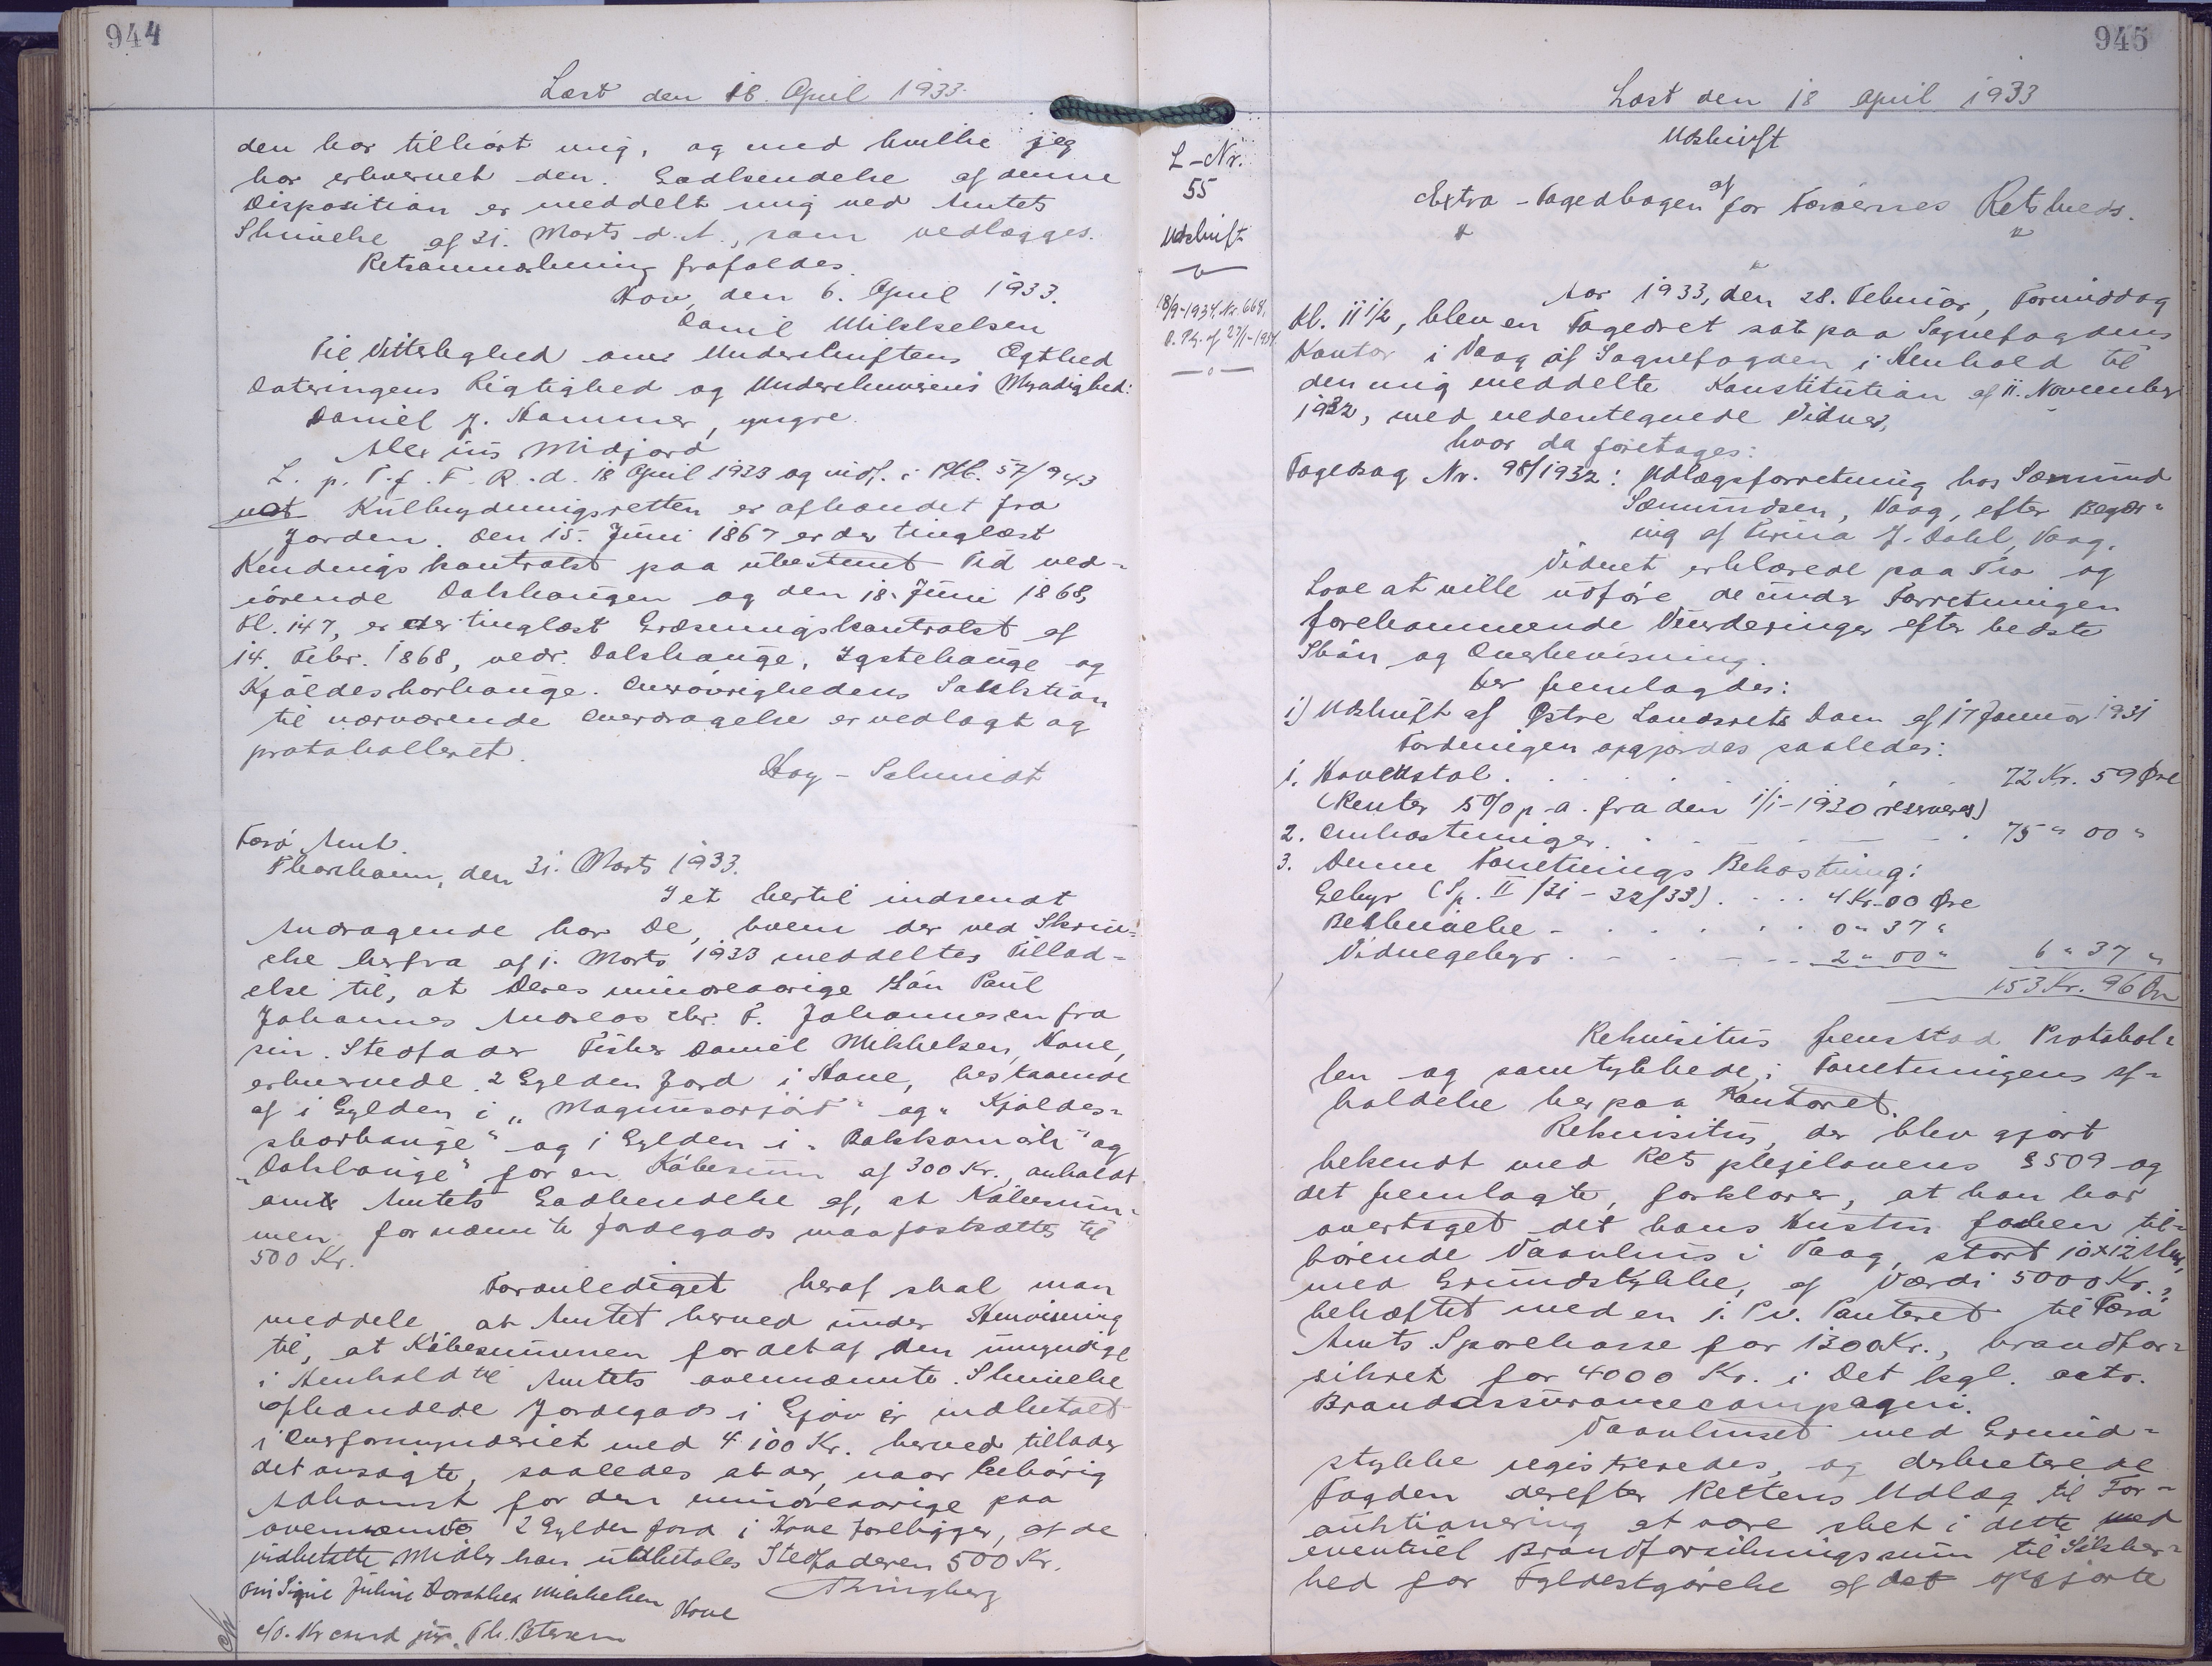 944
Læst den 18. April 1933.
den har tilhørt mig, og med hvilke jeg
har erhvervet den. Godkendelse af denne
Disposition er meddelt mig ved Amtets
Skrivelse af 31. Marts d. A., som vedlægges.
Retsanmærkning frafaldes.
Hov, den 6. April 1933.
Daniel Mikkelsen
Til Vitterlighed om Underskriftens Ægthed
Dateringens Rigtighed og Underskriverens Myndighed:
Daniel J. Hammer, yngre
Alexius Midjord
L. p. T. f. F. R. d. 18 April 1933 og indf. i Ptk. 57/943
not Kulbrydningsretten er afhændet fra
Jorden. Den 15. Juni 1867 er der tinglæst
Kendingskontrakt paa ubestemt Tid ved-
rørende Dalshaugen og den 18. Juni 1868,
Kl. 147, er der tinglæst Græsningskontrakt af
14. Febr. 1868, vedr. Dalshauge, Ygstehauge og
Kjøldesborhauge. Overøvrighedens Sanktion
til nærværende Overdragelse er vedlagt og
protokolleret.
Hoy-Schmidt
Færø Amt.
Thorshavn, den 31. Marts 1933.
I et hertil indsendt
Andragende har De, hvem der ved Skriv-
else herfra af 1. Marts 1933 meddeltes Tillad-
else til, at Deres mindreaarige Søn Paul
Johannes Andreas Chr. F. Johannesen fra
sin Stedfader Fisker Daniel Mikkelsen, Hove,
erhvervede 2 Gylden Jord i Hove, bestaaende
af 1 Gylden i "Magnusarjørd" og "Kjøldes-
skorhauge" og 1 Gylden i "Bakkamørk" og
"Dalshauge" for en Købesum af 300 Kr., anholdt
om Amtets Godkendelse af, at Købesum-
men for nævnte Jordegods maa fastsættes til
500 Kr.
Foranlediget heraf skal man
meddele, at Amtet herved under Henvisning
til, at Købesummen for det af den umyndige
i Henhold til Amtets ovennævnte Skrivelse
afhændede Jordegods i Gjov er indbetalt
i Overformynderiet med 4100 Kr. herved tillader
det ansøgte, saaledes at der, naar behørig
Adkomst for den mindreaarige paa
ovennævnte 2 Gylden Jord i Hove foreligger, af de
indbetalte Midler kan udbetales Stedfaderen 500 Kr.
Ringberg
Fru Signe Juline Dorothea Mikkelsen Hove
c/o. Kr. Th. Petersen
L-Nr.
55
Udskrift
18/9-1934. Nr. 668.
945
Læst den 18 April 1933
Udskrift
af
Extra-Fogedbogen for Færøernes Retskreds.
Aar 1933, den 28. Februar, Formiddag
Kl. 11 1/2, blev en Fogedret sat paa Sognefogdens
Kontor i Vaag af Sognefogden i Henhold til
den mig meddelte Konstitution af 11. November
1932, med nedentegnede Vidner,
hvor da foretages:
Fogedsag Nr. 98/1932: Udlægsforretning hos Sæmund
Sæmundsen, Vaag, efter Begær-
ing af J. Dahl, Vaag.
Vidnet erklærede paa Tro og
Love at ville udføre de under Forretningen
forekommende Vurderinger efter bedste
Skøn og Overbevisning.
Der fremlagdes:
1) Udskrift af Østre Landsrets Dom af 17 Januar 1931
Fordringen opgjordes saaledes:
1. Hovedstol . . . . . . 72 Kr. 59 Øre
(Renter 5% p.a. fra den 1/1-1930 reserveres)
2. Omkostninger . . . . . . 75 " 00 "
3. Denne Forretnings Bekostning:
Gebyr (Sp. II/31-32/33) . . . . 4 Kr. 00 Øre
Beskrivelse . . . . . . 0 " 37 "
Vidnegebyr . . . . . 2 " 00 " 6 " 37 "
153 Kr. 96 Øre
Rekvisitus fremstod Protokol-
len og samtykkede i Forretningens Af-
holdelse her paa Kontoret.
Rekvisitus, der blev gjort
bekendt med Retsplejelovens § 509 og
det fremlagte, forklarer, at han har
overtaget det hans Hustru forhen til-
hørende Vaanhus i Vaag, stort 10x12 Alen,
med Grundstykke, af Værdi 5000 Kr.,
behæftet med en 1. Pr. Panteret til Færø
Amts Sparekasse for 1300 Kr., brandfor-
sikret for 4000 Kr. i Det kgl. octr.
Brandassurancecompagni.
Vaanhuset med Grund-
stykke registreredes, og dekreterede
Fogden derefter Rettens Udlæg til For-
auktionering at være sket i dette med
eventuel Brandforsikringssum til Sikker-
hed for Fyldestgørelse af det opgjorte